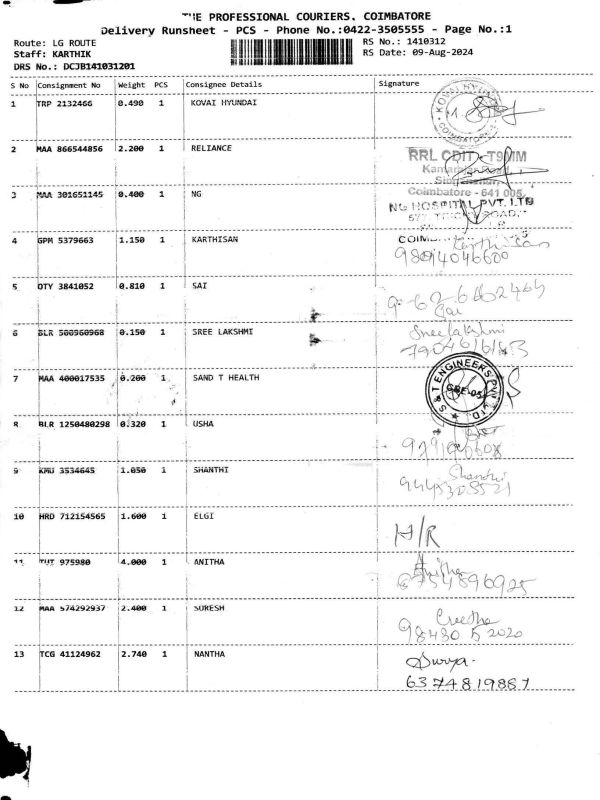 THE PROFESSIONAL COURIERS. COIMBATORE
Delivery Runsheet - PCS - Phone No.:0422-3505555 - Page No.:1
Route: LG ROUTE RS No.: 1410312
Staff: KARTHIK RS Date: 09-Aug-2024
DRS No.: DCJB141031201
S No Consignment No Weight PCS Consignee Details Signature
1 TRP 2132466 0.490 1 KOVAI HYUNDAI
KOVAI HYUNDAI COIMBATORE
2 MAA 866544856 2.200 1 RELIANCE
RRL CDIT-T9MM
Road,
Coimbatore - 641 005.
3 MAA 301651145 0.400 1 NG
NG HOSPITAL PVT. LTD
577, TRICHY ROAD,
4 GPM 5379663 1.150 1 KARTHISAN
Karthisan
5 OTY 3841052 0.810 1 SAI
Sai
6 BLR 500960968 0.150 1 SREE LAKSHMI
Sreelakshmi
7 MAA 400017535 0.200 1 SAND T HEALTH
S & T ENGINEERS PVT. LTD. CBE-05
8 BLR 1250480298 0.320 1 USHA
9 KMU 3534645 1.050 1 SHANTHI
Shanthi
10 HRD 712154565 1.600 1 ELGI
H/R
11 TUT 975980 4.000 1 ANITHA
Anitha
6754896925
12 MAA 574292937 2.400 1 SURESH
13 TCG 41124962 2.740 1 NANTHA
Surya
6374819867